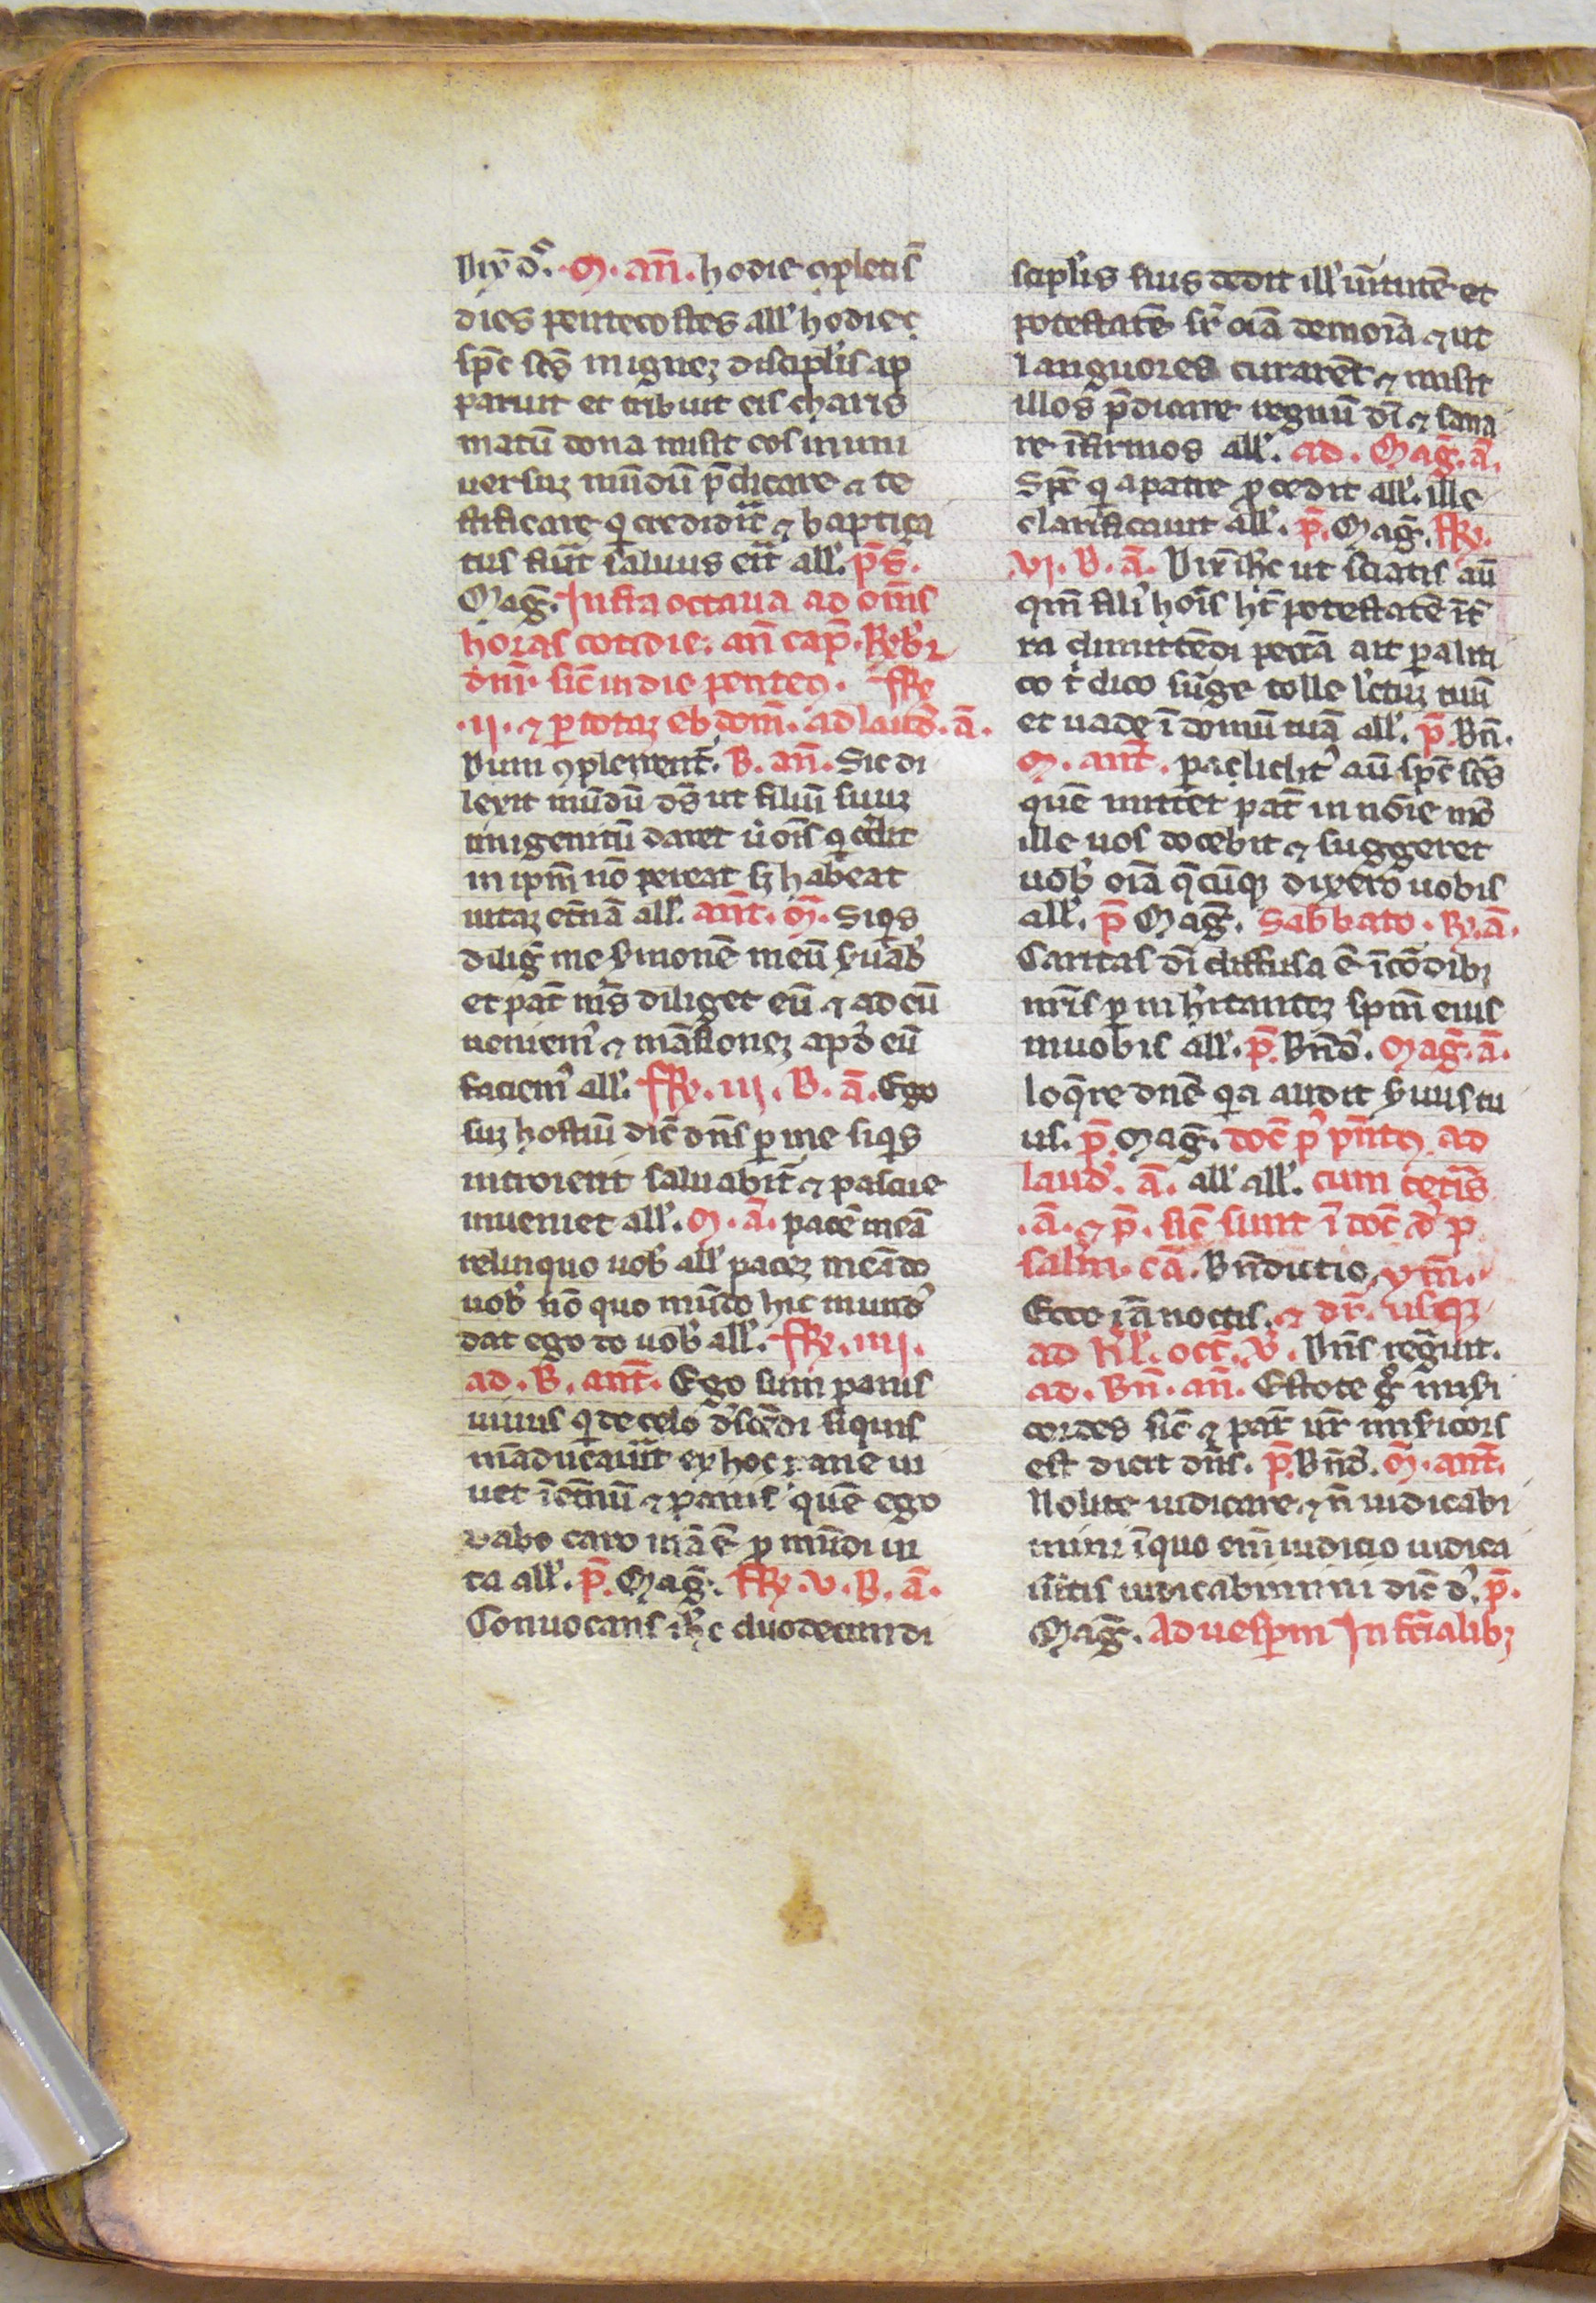 Dix̄ dn̄s. M. an̄. hodie ꝯpleti s̄
dies pentecostes all' hodie
sp̄c sc̄s in ignez discipl'is ap
paruit et tribuit eis charis
matū dona misit eos in uni
uersuz mūdū p̄dicare ⁊ te
stificare q' crediđit ⁊ baptiça
tus fuīt saluus erit all'. p̄s.
Maḡ. Infra octaua ad om̄s
horas cotidie. an̄ cap̄. Rb'
dn̄i sic̄ in die penteꝯ. ffȳ
.ij. ⁊ ꝑ totuz ebdom̄. ad laud̄. ā.
Dum ꝯplerent'. B. an̄. Sic di
lexit mūdū ds̄ ut filiū suuz
unigenitū daret ut om̄s q' c̄dit
in ip̄m nō pereat sz habeat
uitaz etn̄ā all'. ant̄. M. Siq's
diliḡ me ẜmonē meū ẜuab'
et pat̄ ms̄ diliget eū ⁊ ad eū
ueniem' ⁊ māsionez apd' eū
faciem' all'. ffȳ. iij. B. ā. Ego
suz hostiū dic̄ dn̄s ꝑ me siq's
introierit saluabit̄ ⁊ pascue
inueniet all'. M. ā. pacē meā
relinquo uob' all' pacez meā do
uob' nō quo mūdo hic mund'
dat ego do uob' all'. ffȳ. iiij.
ad. B. ant̄. Ego sum panis
uiuus q' de celo d'scēdi siquis
māducauīt ex hoc pane ui
uet ī et̄nū ⁊ panis quē ego
dabo caro mā ē ꝓ mūdi ui
ta all'. p̄. Maḡ. ffȳ. v. B. ā.
Conuocans ih̄c duodecim di
scipl'is suis dedit ill' uīrtutē et
potestatē sr̄ oīa demoīa ⁊ ut
languores curarent ⁊ misit
illos p̄dicare regnū dī ⁊ sana
re īfirmos all'. ad. Maḡ. ā.
Sp̄c q' a patre ꝓcedit all'. ille
clarificauit all'. p̄. Maḡ. ffȳ.
vj. B. ā. Dix̄ ih̄c ut sciatis aū
qm̄ fili' hoīs ht̄ potestatē īt
ra dimittēdi pecc̄a ait ꝑaliti
co t' dico surge tolle lectuz tuū
et uade ī domū tuā all'. p̄. Bn̄.
M. ant̄. paꝛclidit' aū sp̄c sc̄s
quē mittet pat̄ in nōie mō
ille uos docebit ⁊ suggeret
uob' oīa q̄cūqz dixero uobis
all'. p̄ Maḡ. Sabbato. B. ā.
Caritas dī diffusa ē ī cōdib'
nr̄is ꝑ inh'itantez spm̄ eius
in uobis all'. p̄. Bn̄d'. Maḡ. ā.
loq̄re dn̄e q'a audit ẜuus tu
us. p̄. Maḡ. doc̄ p' pn̄teꝯ ad
laud'. ā. all' all'. cum cet̄is
.ā. ⁊ p̄. sic̄ sunt ī doc̄ d' p
salm̄. cā. Bn̄dictio, ym̄.
Ecce iā noctis. ⁊ dr̄. usqz
ad kl'. oct̄. v̄. Dn̄s reg̃uit.
ad. Bn̄. an̄. Estote g̊ miẜi
cordes sic̄ ⁊ pat̄ ur̄ miẜicors
est dicit dn̄s. p̄. Bn̄d'. M̄. ant̄.
Nolite iudicare ⁊ n̄ iudicabi
mini īquo enī iudicio iudica
uītis iudicabimini dic̄ d'. p̄.
Maḡ. Ad uesꝑm In ferialib'